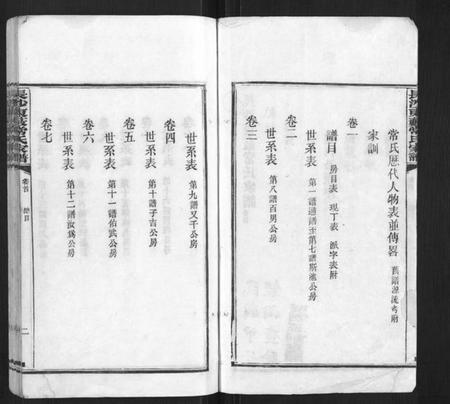 常氏歷代人物表並傳畧 舊譜源流考附
家訓
卷一
譜目 房目表 現丁表 派字表附
卷二
世系表 第一譜通譜至第七譜斯進公房
卷三
世系表 第八譜百男公房
卷四
世系表 第九譜又千公房
卷五
世系表 第十譜子吉公房
卷六
世系表 第十一譜佑武公房
卷七
世系表 第十二譜汝爲公房
卷首 譜目
二